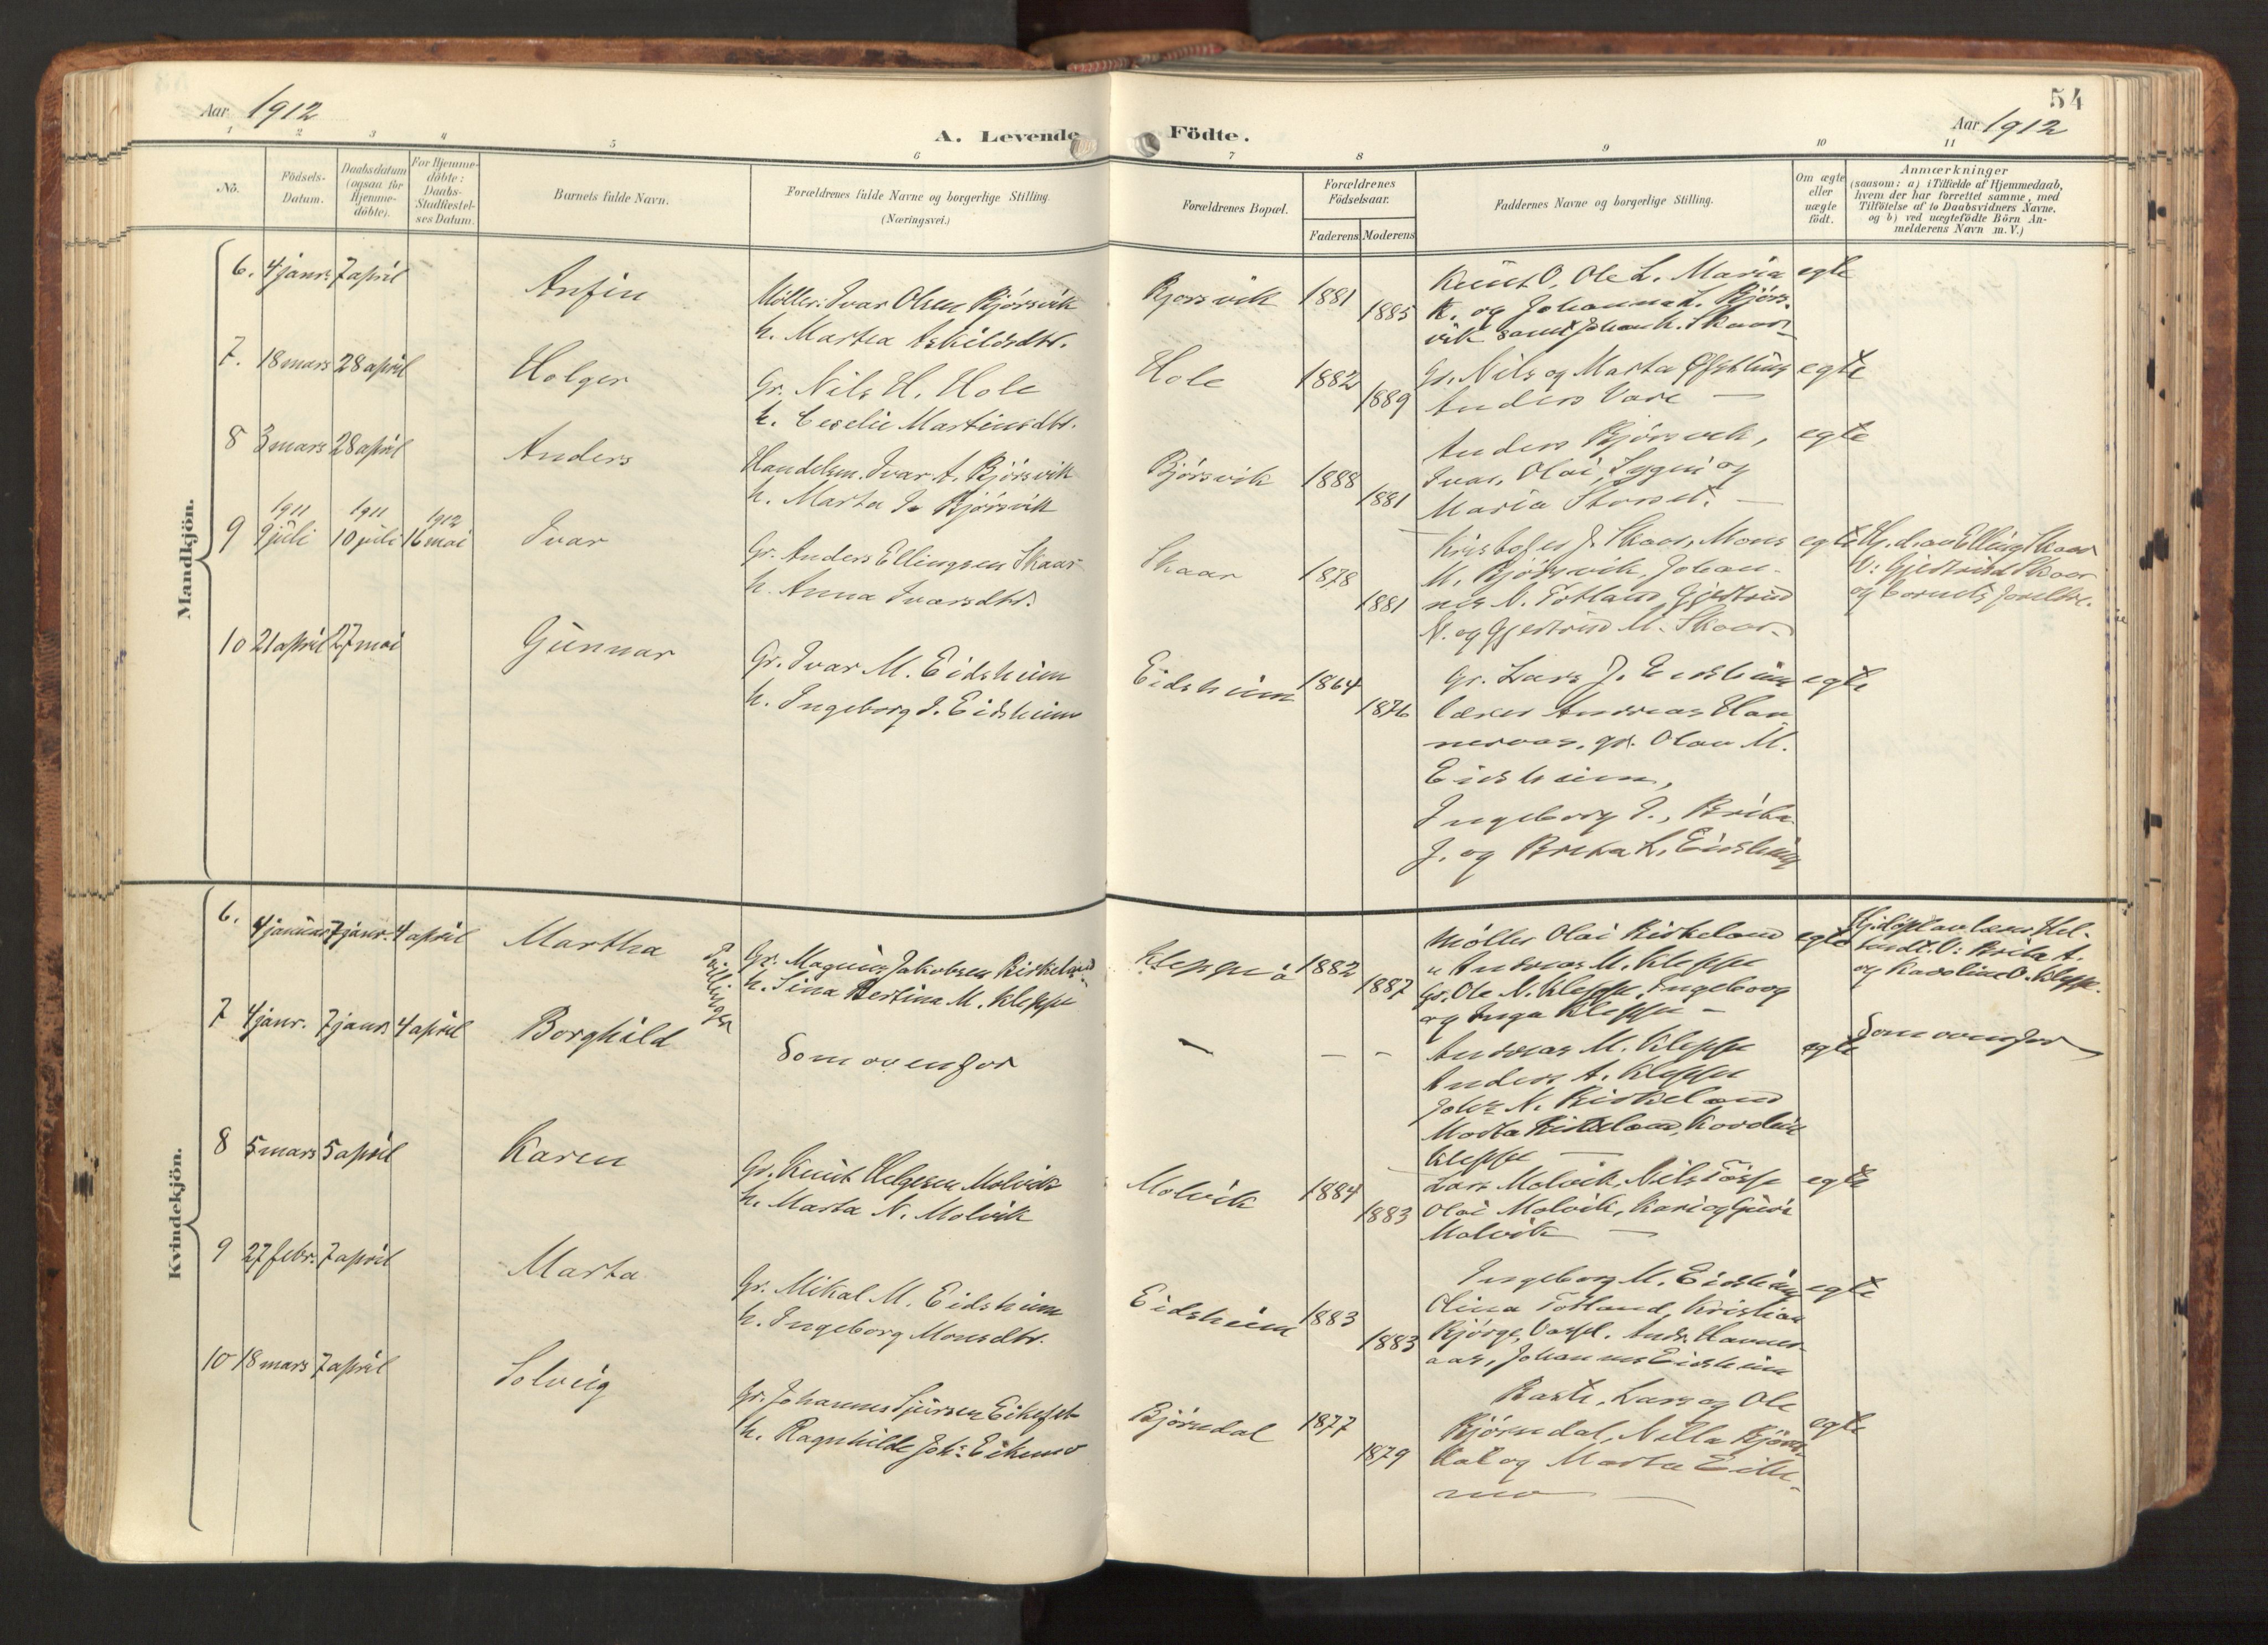 54
Aar 1912
A. Levende Födte.
Aar 1912
1 2 3 4 5 6 7 8 9 10 11
No.
Födsels-
Datum.
Daabsdatum
(ogsaa for
Hjemme-
döbte).
For Hjemme-
döbte:
Daabs-
Stadfæstel-
ses Datum.
Barnets fulde Navn.
Forældrenes fulde Navne og borgerlige Stilling.
(Næringsvei.)
Forældrenes Bopæl.
Forældrenes
Födselsaar.
Faderens Moderens
Faddernes Navne og borgerlige Stilling.
Om ægte
eller
uægte
födt.
Anmærkninger
(saasom: a) i Tilfælde af Hjemmedaab,
hvem der har forrettet samme, med
Tilföielse af to Daabsvidners Navne.
og b) ved uægtefödte Börn An-
melderens Navn m. V.)
Mandkjön.
6. 4 janr. 7 april
Anfin
Møller: Ivar Olsen Bjørsvik
h. Martea Askildsdtr.
Bjorsvik
1881
1885
Knut O, Ole L. Maria
K. og Johanna L. Bjørs-
vik samt Johan K. Skaar
egte
7. 18 mars 28 april
Holger
Gr. Nils H. Hole
h. Cecelie Martinsdtr.
Hole
1882
1889
Gr. Nils og Marta
Anders Vare —
egte
8 3 mars 28 april
Anders
Handelsm. Ivar A. Bjørsvik
h. Marta I. Bjørsvik
Bjørsvik
1888
1881
Anders Bjørsvik,
Ivar, Olai, og
Maria —
egte
9
1911
9 juli
1911
10 juli
1912
16 mai
Ivar
Gr. Anders Ellingsen Skaar
h. Anna Ivarsdtr.
Skaar
1878
1881
Kristofer J. Skaar, Mons
M. Bjørsvik, Johan-
nes N. Totland Gjertrud
N. og Gjertrud M. Skaar
egte
Hj. d. av Elling Skaar
V: Gjertrud Skaar
og barnets foreldre.
10 21 april 27 mai
Gunnar
Gr. Ivar M. Eidsheim
h. Ingeborg J. Eidsheim
Eidsheim
1864
1876
Gr. Lars J. Eidsheim
lærer Andreas Hav
neraas, gr. Olav M.
Eidsheim,
Ingeborg I., Brita
J. og Brita L. Eidsheim
egte
Kvindekjön.
6. 4 januar 7 janr. 4 april
Martha
Tvillinger
Gr. Magnus Jakobsen Birkeland
h. Sina Bertina M. Kleppe
1882
1887
Møller Olai Birkeland
" Andreas M. Kleppe
Gr. Ole N. Kleppe, Ingeborg
og Inga Kleppe —
egte
Hj. døpt av lærer Hel-
V: Brita A.
og Karoline O. Kleppe.
7 4 janr. 7 janr 4 april
Borghild
Som ovenfor
— — —
Andreas M. Kleppe
Anders A. Kleppe
Johs N. Birkeland
Marta Birkeland, Karoline
Kleppe —
egte
Som ovenfor
8 5 mars 5 april
Karen
Gr. Knut Helgesen Molvik
h. Marta N. Molvik
Molvik
1884
1883
Lars Molvik, Nils Tosse
Olai Molvik, Kari og Guri
Molvik —
egte
9 27 febr. 7 april
Marta
Gr. Mikal M. Eidsheim
h. Ingeborg Monsdtr.
Eidsheim
1883
1883
Ingeborg M. Eidsheim
Olina Totland, Kristian
Bjørge, Andr. Havner-
aas, Johannes Eidsheim
egte
10 18 mars 7 april
Solveig
Gr. Johannes Sjursen Eikefet
h. Ragnhilde Johs. Eikemo
Bjørndal
1877
1879
Lars og Ole
Bjørndal, Nilla Bjørn-
dal og Marta Eike-
mo —
egte